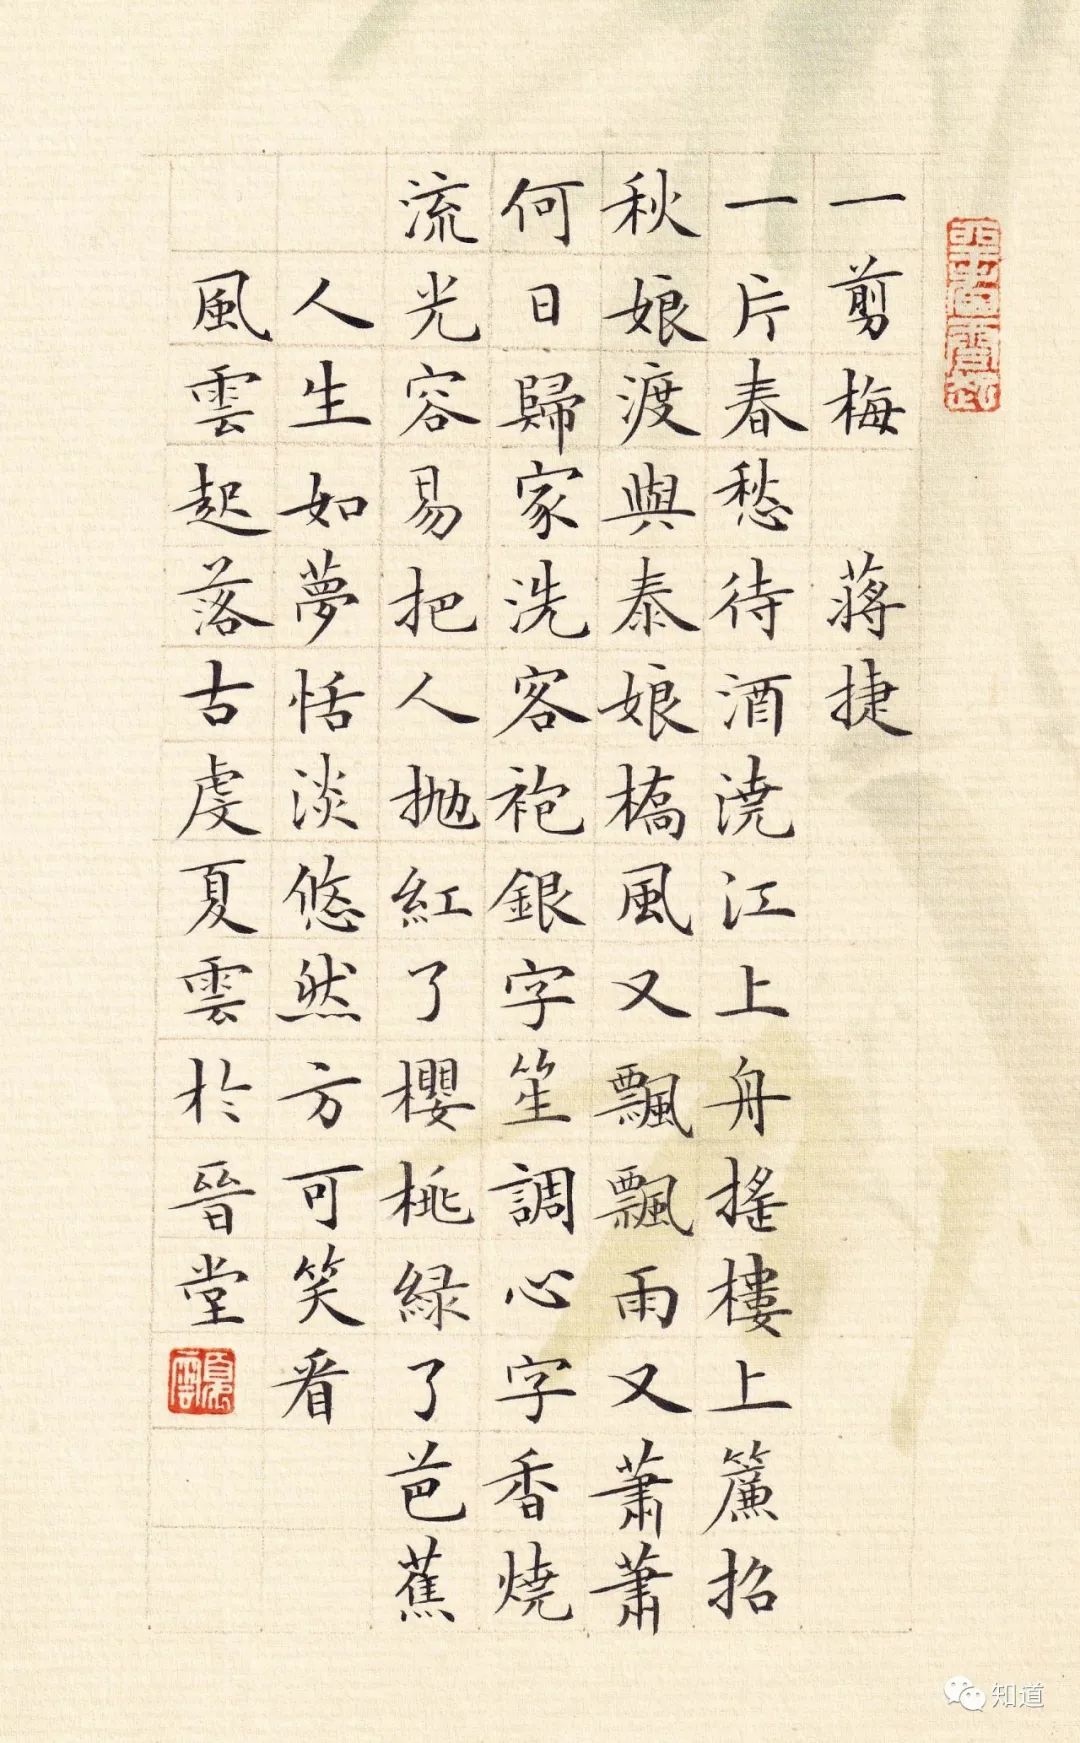 一剪梅 蔣捷
一片春愁待酒澆江上舟搖樓上簾招
秋娘渡與泰娘橋風又飄飄雨又蕭蕭
何日歸家洗客袍銀字笙調心字香燒
流光容易把人拋紅了櫻桃綠了芭蕉
人生如夢恬淡悠然方可笑看
風雲起落古虔夏雲於晉堂
夏雲
知道